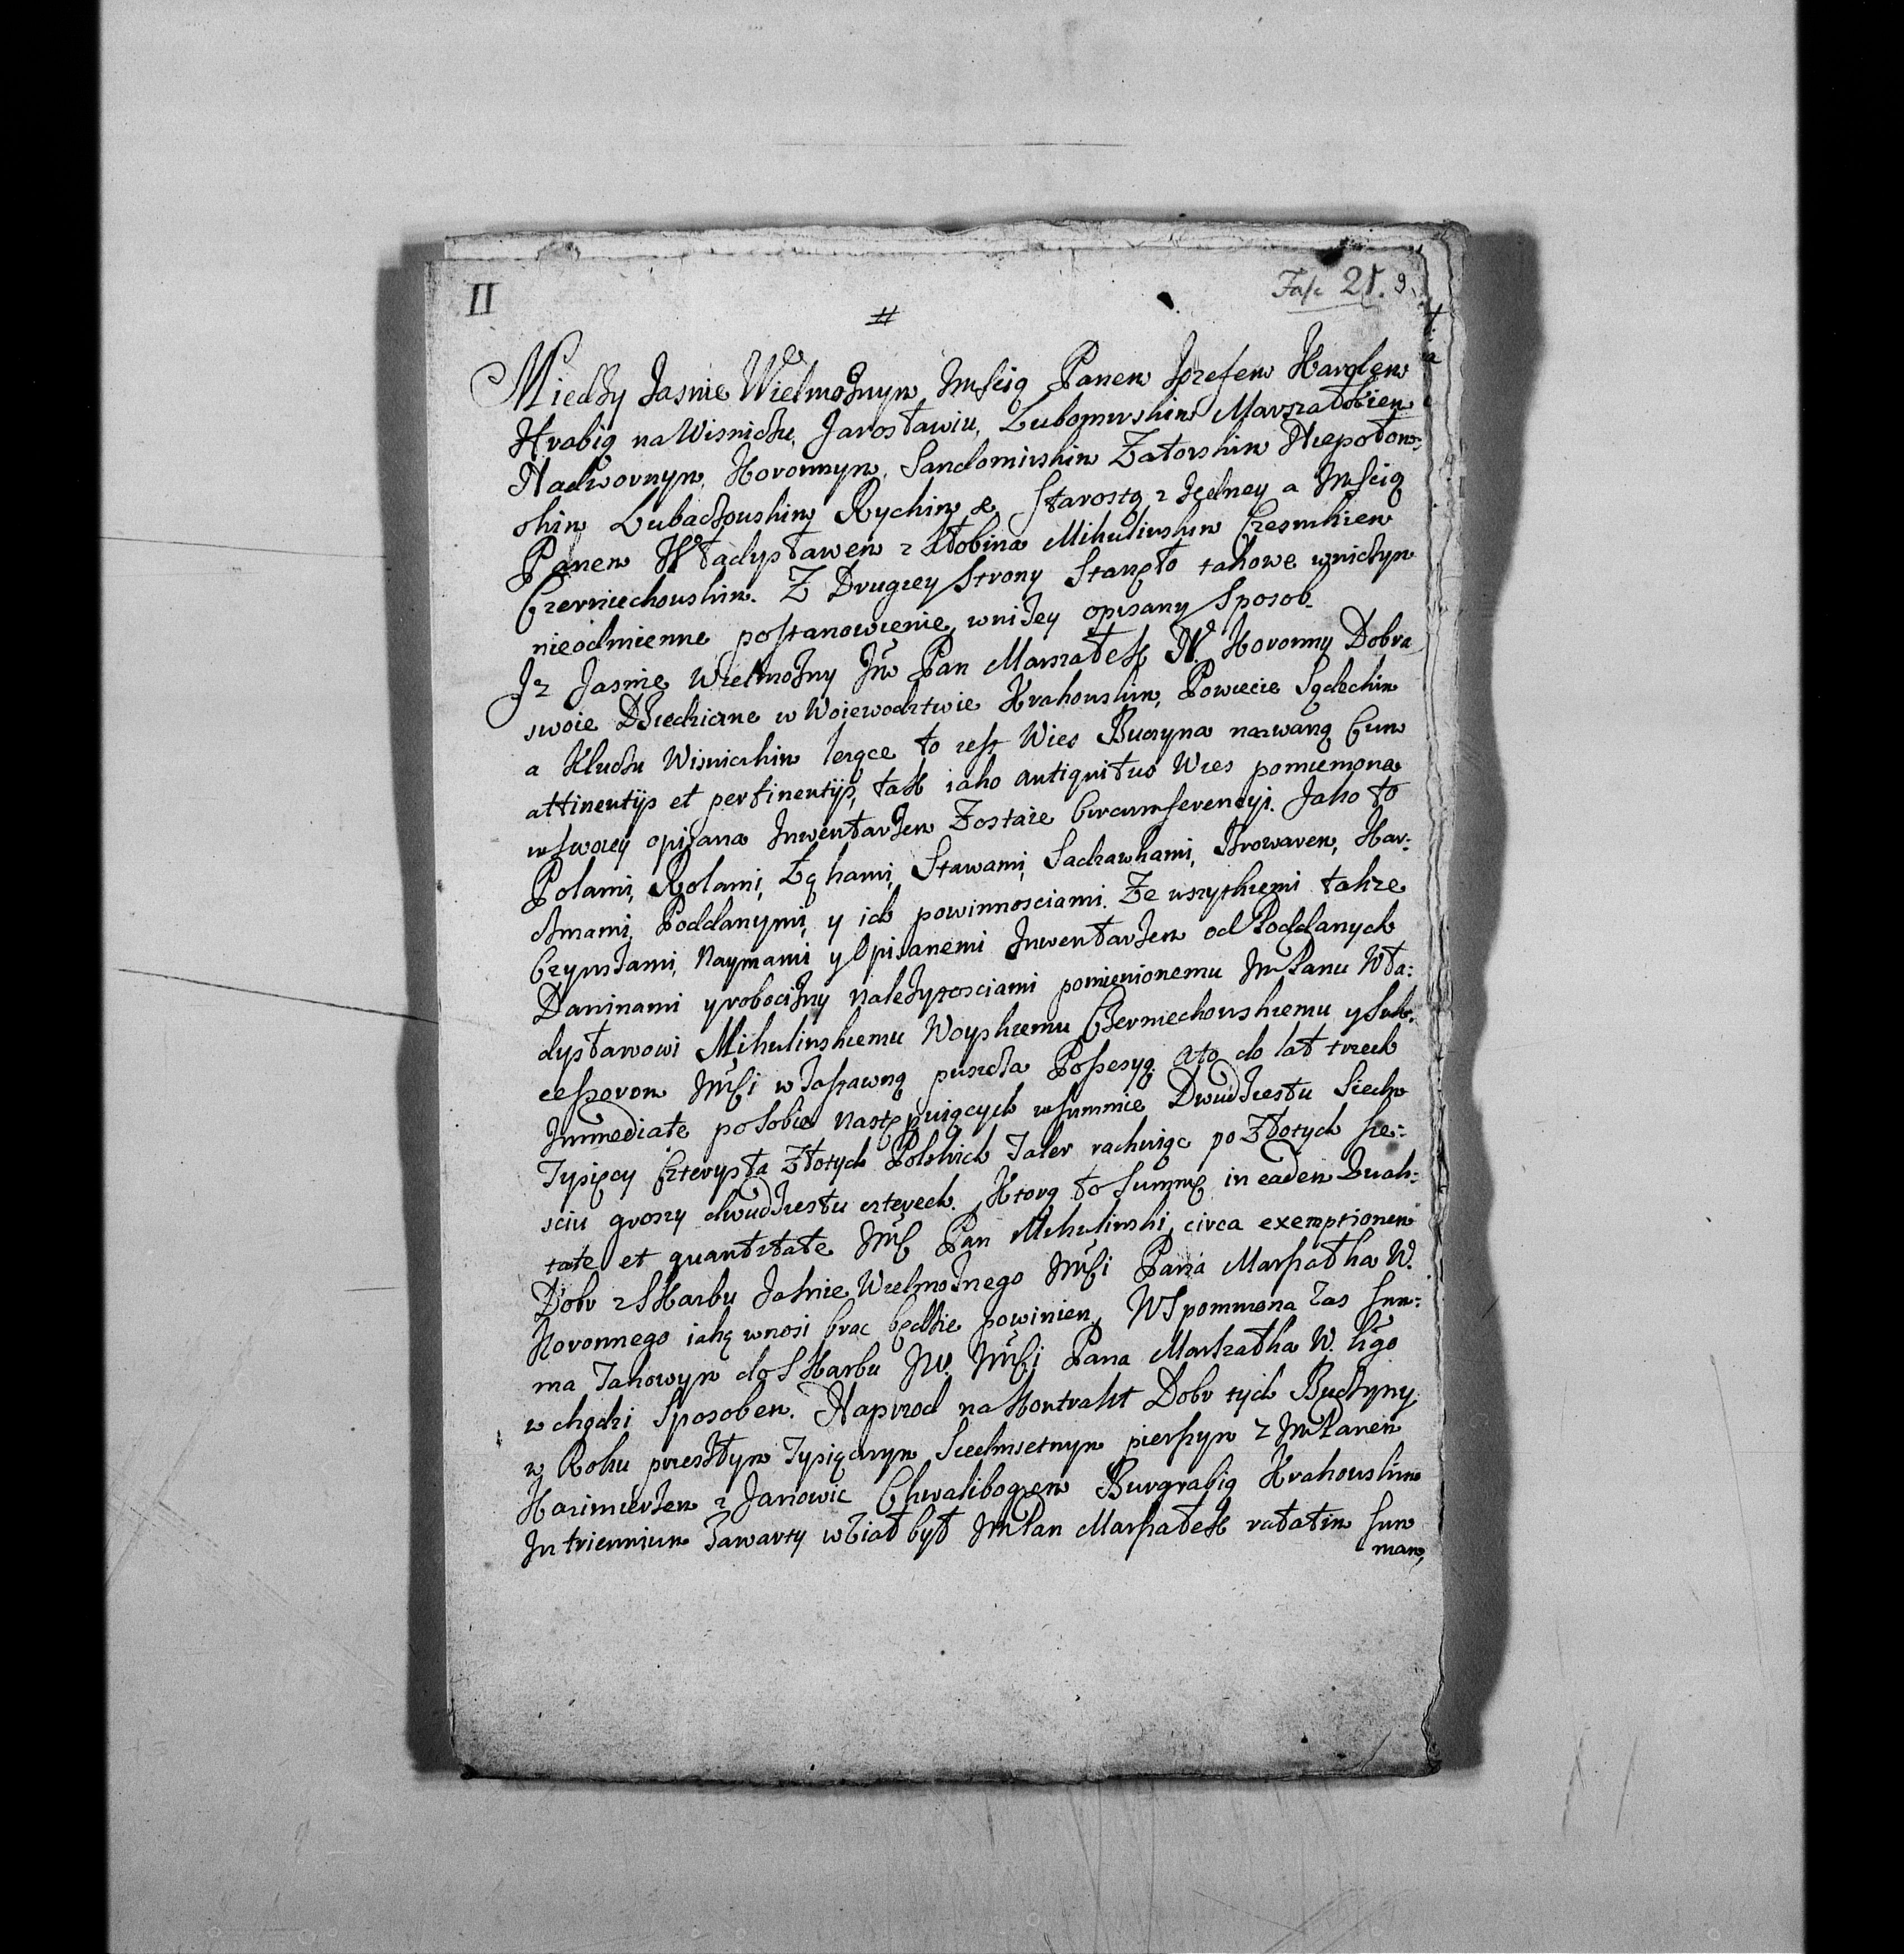 II
Fasc 21. 9.
#
Miedzy Jasnie Wielmoznym Jmscią Panem Jozefem Karolem
Hrabią na Wisniczu, Jarosławiu, Lubomirskim Marszałkiem
Nadwornym Koronnym, Sandomirskim Zatorskim Niepołom:
skim Lubaczowskim Ryckim & Starostą z Jedney a Jmscią
Panem Władysławem z Słobina Mikulinskim Czesnikiem
Czerniechowskim. Z Drugiey Strony Stanęło takowe wniczym
nieodmienne postanowienie, wnizey opisany Sposob.
Iz Jasnie Wielmozny Jm̃ Pan Marszałek N. Koronny Dobra
swoie Dziedziczne w Woiewodztwie Krakowskim, Powiecie Sądeckim
a Kluczu Wisnickim lezące to iest Wies Buczyna nazwaną Cum
attinentijs et pertinentijs, tak iako antiquitus Wies pomieniona
w swoiey opisana Inwentarzem Zostaie Circumferencyi. Jako to
Polami, Rolami, Łąkami, Stawami, Sadzawkami, Browarem, Kar:
czmami, Poddanymi, y ich powinnosciami. Ze wszytkiemi takze
Czynszami, Naymami y Opisanemi Inwentarzem od Poddanych
Daninami y robocizny nalezytosciami pomienionemu Jm Panu Wła:
dysławowi Mikulinskiemu Woyskiemu Czerniechowskiemu y Suk:
cessorom Jm̃sci w Zastawną puszcza Possesyą. Ato do lat trzech
Immediate po Sobie następuiących w summie Dwudziestu Siedm
Tysięcy Czterysta Złotych Polskich Taler rachuiąc po Złotych sze:
sciu groszy dwudziestu czterech. Ktorą to Summę in eadem Quali:
tate et quantitate Jm̃sc Pan Mikulinski, circa exemptionem
Dobr z Skarbu Jasnie Wielmoznego Jm̃sci Pana Marszałka N.
Koronnego iaką wnosi brac będzie powinien, Wspomniona zas Sum:
ma Takowym do Skarbu JW. Jm̃sci Pana Marszałka N. Kgo
wchodzi Sposobem. Naprzod na Kontrakt Dobr tych Buczyny
w Roku przeszłym Tysiącznym Siedmsetnym pierszym z Jm Panem
Kazimierzem z Janowic Chwalibogiem Burgrabią Krakowskim
In triennium Zawarty wziął był Jm Pan Marszałek ratatim Sum
mam,